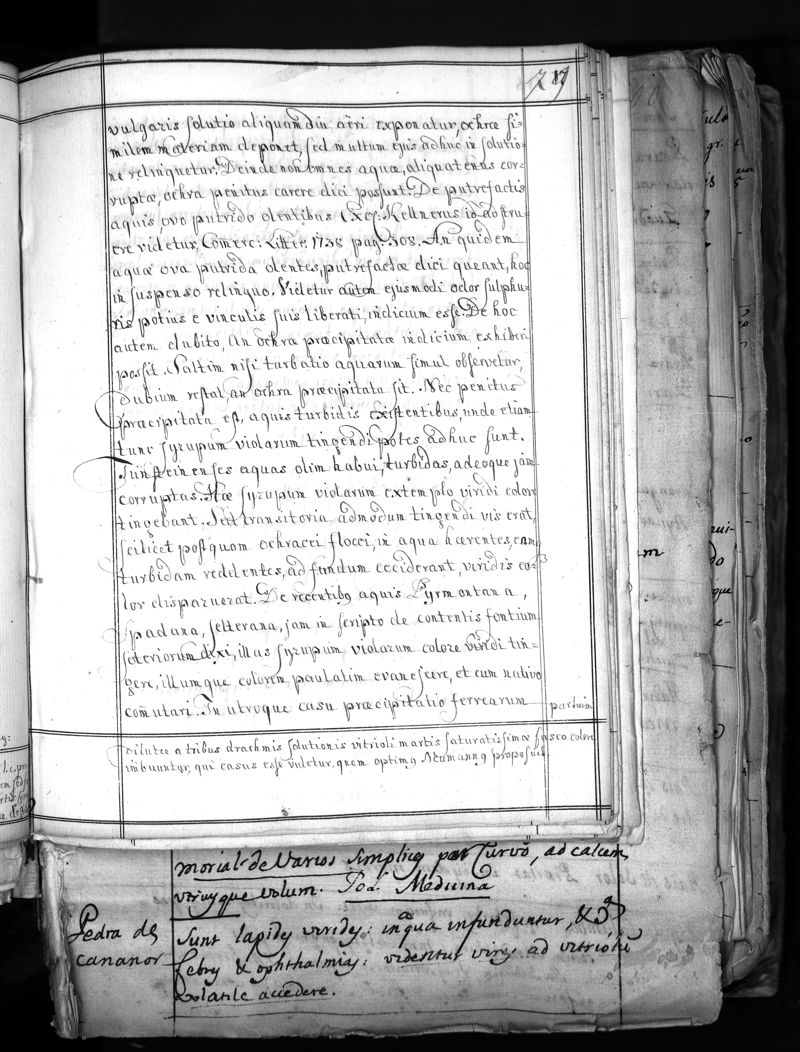 719
vulgaris solutio aliquamdiu aëri exponatur, ochræ si=
milem materiam deponet, sed multum ejus adhuc in solutio=
ne relinquetur. Deinde non omnes aquæ, aliquatenus cor=
ruptæ, ochra penitus carere dici possunt. De putrefactis
aquis, ovo putrido olentibus Exc: Kellnerus id adstru=
ere videtur, Comerc: Litter: 1738 pag: 308. An quidem
aquæ ova putrida olentes, putrefactæ dici queant, hoc
in suspenso relinquo. Videtur autem ejusmodi odor sulphu=
ris potius e vinculis suis liberati, indicium esse. De hoc
autem dubito, An ochræ præcipitatæ indicium exhiberi
possit. Saltim nisi turbatio aquarum simul observetur,
dubium restat, an ochra præcipitata sit. Nec penitus
præcipitata est, aquis turbidis existentibus, unde etiam
tunc syrupum violarum tingendi potes adhuc sunt.
Tünsteinenses aquas olim habui, turbidas, adeoque jam
corruptas. Hæ syrupum violarum extemplo viridi colore
tingebant. Sed transitoria admodum tingendi vis erat,
scilicet postquam ochracei flocci, in aqua hærentes, eam
turbidam reddentes, ad fundum ceciderant, viridis co=
lor disparuerat. De recentibꝯ aquis Pyrmontana,
Spadana, Selterana, jam in scripto de contentis fontium
soteriorum dixi, illas syrupum violarum colore viridi tin=
gere, illumque colorem paulatim evanescere, et cum nativo
com̃utari. In utroque casu præcipitatio ferrearum
partium
dilutæ a tribus drachmis solutionis vitrioli martis saturatissimæ fusco colore
imbuuntur, qui casus esse videtur, quem optimꝯ Neumannꝯ proposuit
morial de Varios simplices par Curvõ, ad calcem
utriusque volum. Pol. Medicina
Pedra de
cananor
Sunt lapides virides: in aqua infunduntur, &
febres & ophthalmias: videntur vires ad vitriolũ
volatile accedere.